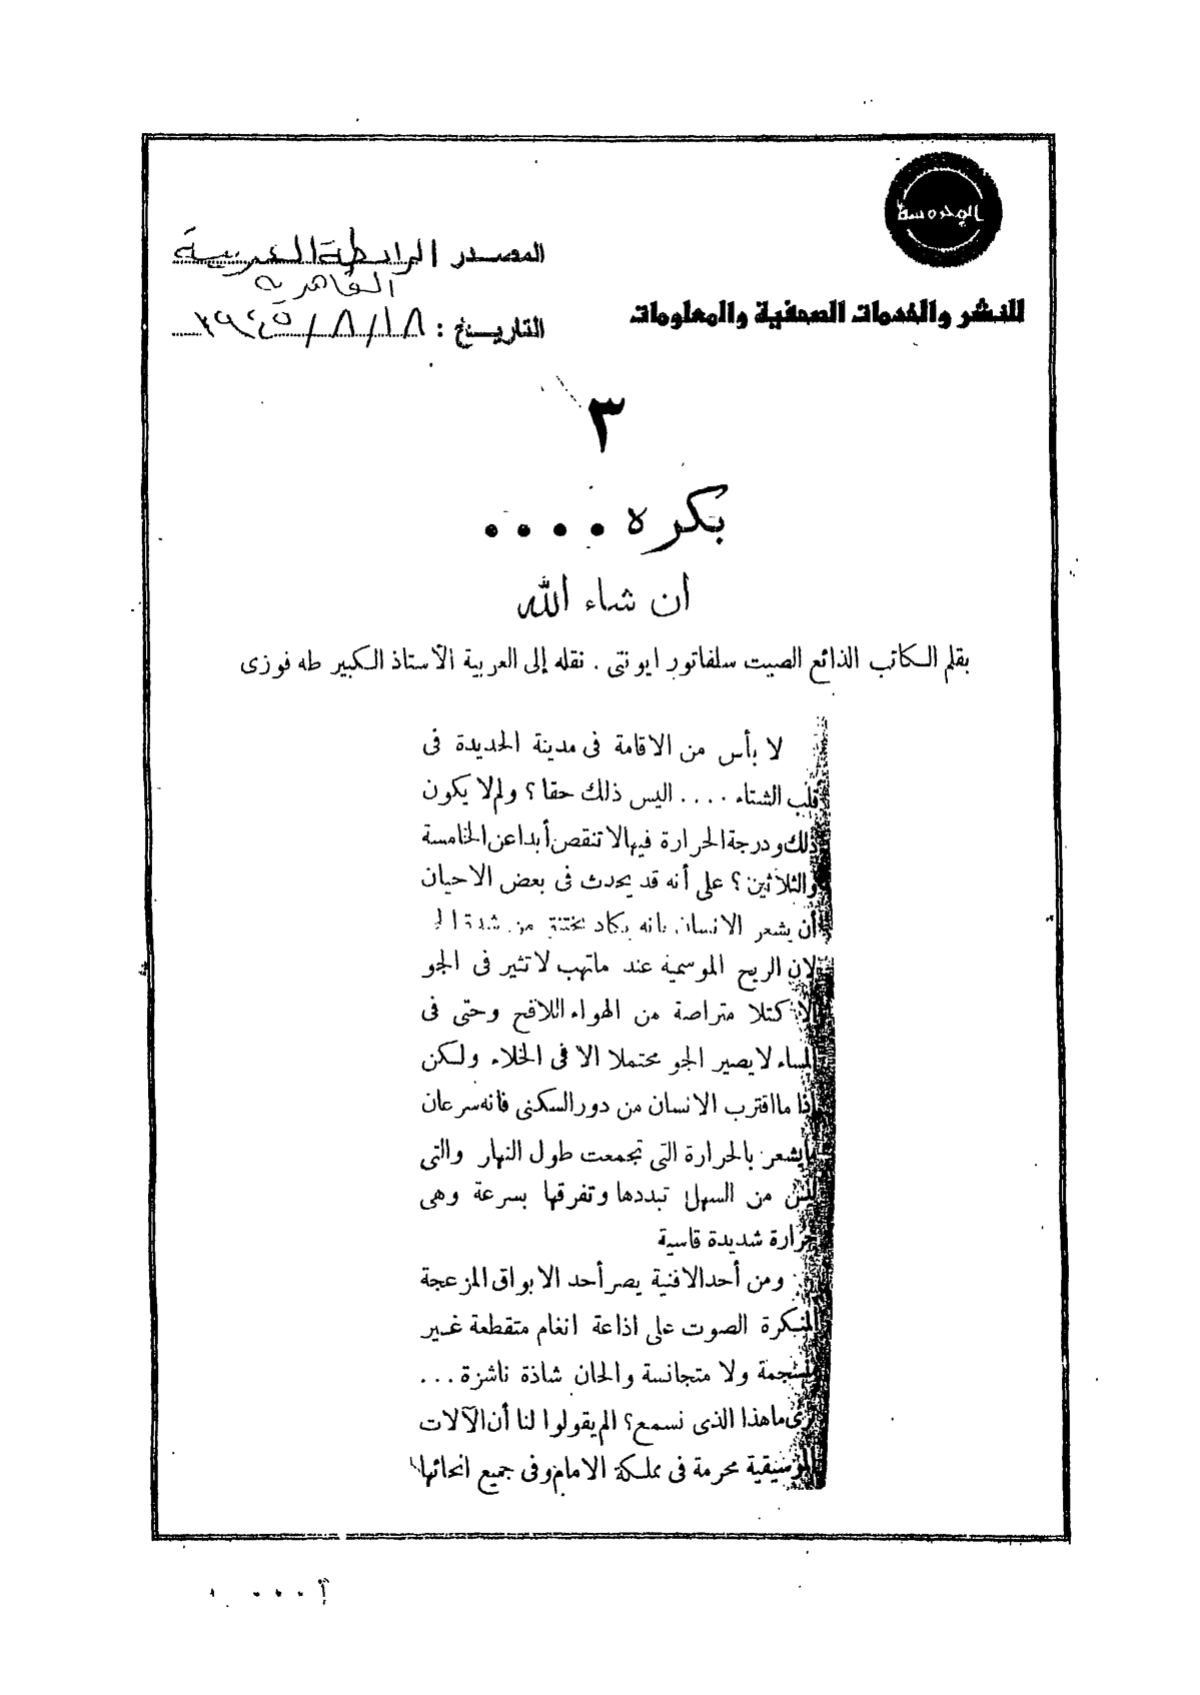 المحروسة
للنشر والخدمات الصحفية والمعلومات
المصدر الرابطة العربية
القاهرية
التاريخ : ١٨/٨/
٣
بكره ....
ان شاء الله
بقلم الكاتب الذائع الصيت سلفاتور ايونتى . نقله إلى العربية الأستاذ الكبير طه فوزى
لا بأس من الاقامة فى مدينة الحديدة فى
قلب الشتاء .... اليس ذلك حقا ؟ ولم لا يكون
ذلك ودرجة الحرارة فيها لا تنقص أبدا عن الخامسة
والثلاثين ؟ على أنه قد يحدث فى بعض الاحيان
أن يشعر الانسان بانه يكاد يختنق من شدة
لان الريح الموسمية عند ماتهب لا تثير فى الجو
الا كتلا متراصة من الهواء اللافح وحتى فى
المساء لا يصير الجو محتملا الا فى الخلاء ولكن
إذا ما اقترب الانسان من دور السكنى فانه سرعان
مايشعر بالحرارة التى تجمعت طول النهار والتى
ليس من السهل تبددها وتفرقها بسرعة وهى
حرارة شديدة قاسية
ومن أحد الافنية يصر أحد الابواق المزعجة
المنكرة الصوت على اذاعة انغام متقطعة غير
منسجمة ولا متجانسة والحان شاذة ناشزة ...
ترى ماهذا الذى نسمع ؟ الم يقولوا لنا أن الآلات
الموسيقية محرمة فى مملكة الامام وفى جميع انحائها